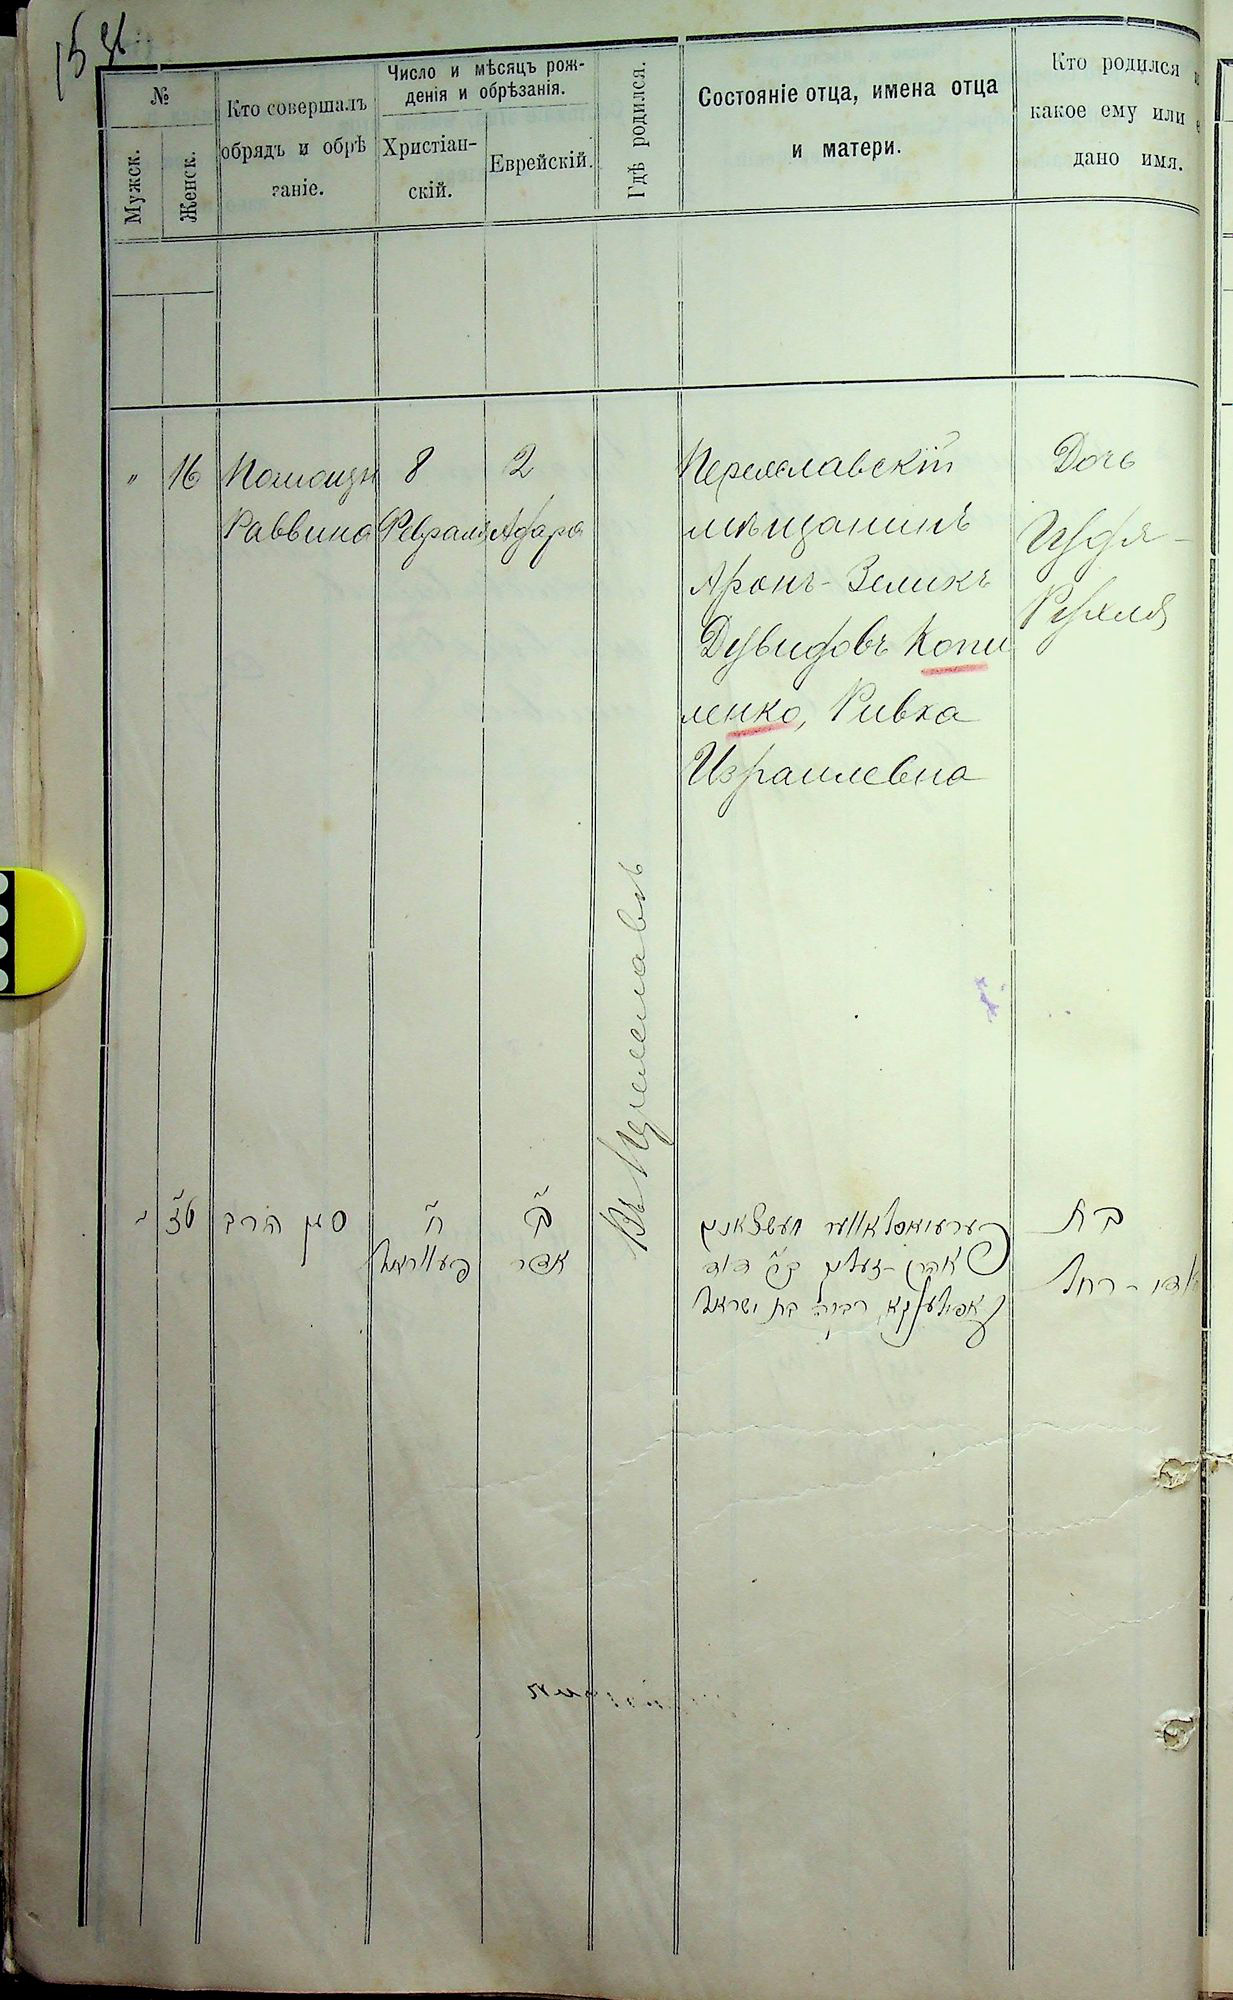 №
Мужск.
Женск.
Кто совершалъ
обрядъ и обрѣ
заніе.
Число и мѣсяцъ рож-
денія и обрѣзанія.
Христіан-
скій.
Еврейскій.
Гдѣ родился.
Состояніе отца, имена отца
и матери.
Кто родился
какое ему или
дано имя.
"
16
Помощн
Раввина
8
Февраля
2
Адара
Въ Переяславѣ
Переяславскій
мѣщанинъ
Аронъ-Зеликъ
Дувидовъ Копи
ленко, Ривка
Израилевна
Дочь
Идя-
Рухля
טז
סגן הרב
ח
פעווראל
ב
אדר
אהרן-זעליג ב"ר דוד
רבקה בת ישראל
בת
רחל